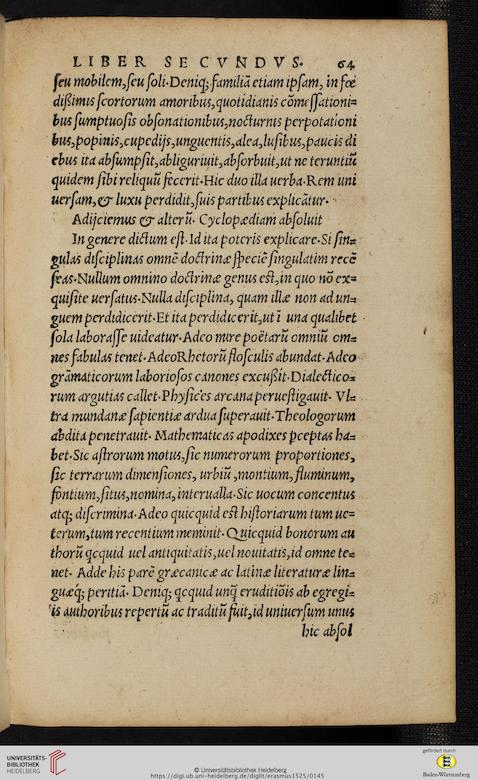 LIBER SECVNDVS. 64
ſeu mobilem,ſeu ſoli.Deniq; familiã etiam ipſam, in fœ
dißimis ſcortorum amoribus,quotidianis cõmeſſationi=
bus ſumptuoſis obſonationibus,nocturnis perpotationi
bus,popinis,cupedijs,unguentis,alea,luſibus,paucis di
ebus ita abſumpſit,abliguriuit,abſorbuit,ut ne teruntiũ
quidem ſibi reliquũ fecerit.Hic duo illa uerba.Rem uni
uerſam,& luxu perdidit,ſuis partibus explicãtur.
Adijciemus & alterũ. Cyclopædiam abſoluit
In genere dictum eſt.Id ita poteris explicare.Si ſin=
gulas diſciplinas omnẽ doctrinæ ſpeciẽ ſingulatim recẽ
ſeas.Nullum omnino doctrinæ genus eſt,in quo nõ ex=
quiſite uerſatus.Nulla diſciplina, quam illæ non ad un=
guem perdidicerit.Et ita perdidicerit,ut ĩ una qualibet
ſola laboraſſe uideatur.Adeo mire poëtarũ omniũ om=
nes fabulas tenet.AdeoRhetorũ floſculis abundat.Adeo
grãmaticorum laborioſos canones excußit.Dialectico=
rum argutias callet.Phyſices arcana perueſtigauit. Vl=
tra mundanæ ſapientiæ ardua ſuperauit.Theologorum
abdita penetrauit. Mathematicas apodixes pceptas ha=
bet.Sic aſtrorum motus,ſic numerorum proportiones,
ſic terrarum dimenſiones, urbiũ ,montium, fluminum,
fõntium,ſitus,nomina, interualla.Sic uocum concentus
atq; diſcrimina.Adeo quicquid eſt hiſtoriarum tum ue=
terum,tum recentium meminit. Quicquid bonorum au
thorũ qcquid uel antiquitatis,uel nouitatis,id omne te=
net. Adde his parẽ græcanicæ ac latinæ literaturæ lin=
guæq; peritiã. Deniq; qcquid unq̃ eruditiõis ab egregi=
is authoribus repertũ ac traditũ fuit,id uniuerſum unus
hic abſol
UNIVERSITÄTS-
BIBLIOTHEK
HEIDELBERG
© Universitätsbibliothek Heidelberg
https://digi.ub.uni-heidelberg.de/diglit/erasmus1525/0145
gefördert durch
Baden-Württemberg